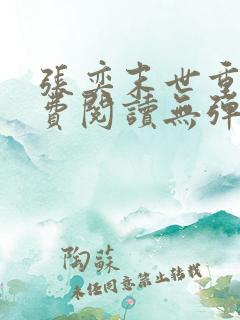 張奕末世重
費閱讀無彈
陶蘇
未經同意禁止轉載